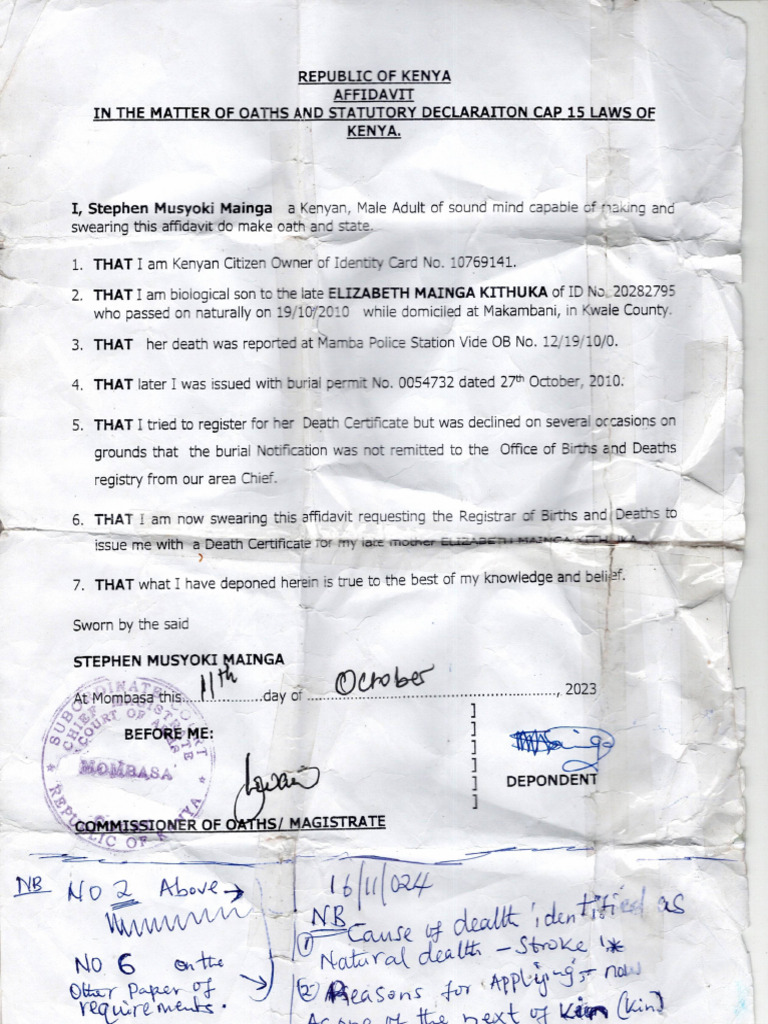 REPUBLIC OF KENYA
AFFIDAVIT
IN THE MATTER OF OATHS AND STATUTORY DECLARAITON CAP 15 LAWS OF
KENYA.
I, Stephen Musyoki Mainga a Kenyan, Male Adult of sound mind capable of making and
swearing this affidavit do make oath and state.
1. THAT I am Kenyan Citizen Owner of Identity Card No. 10769141.
2. THAT I am biological son to the late ELIZABETH MAINGA KITHUKA of ID No. 20282795
who passed on naturally on 19/10/2010 while domiciled at Makambani, in Kwale County.
3. THAT her death was reported at Mamba Police Station Vide OB No. 12/19/10/0.
4. THAT later I was issued with burial permit No. 0054732 dated 27th October, 2010.
5. THAT I tried to register for her Death Certificate but was declined on several occasions on
grounds that the burial Notification was not remitted to the Office of Births and Deaths
registry from our area Chief.
6. THAT I am now swearing this affidavit requesting the Registrar of Births and Deaths to
issue me with a Death Certificate for my late mother ELIZABETH MAINGA KITHUKA.
7. THAT what I have deponed herein is true to the best of my knowledge and belief.
Sworn by the said
STEPHEN MUSYOKI MAINGA
At Mombasa this 11th day of October, 2023
SUBORDINATE COURT
CHIEF MAGISTRATE
COURT OF
MOMBASA
REPUBLIC OF KENYA
BEFORE ME:
DEPONDENT
COMMISSIONER OF OATHS/ MAGISTRATE
NB NO 2 Above →
NO. 6 on the
Other Paper of
requirements.
16/11/024
NB
① Cause of death identified as
Natural death – Stroke
② Reasons for Applying now
As one of the next of Kin (Kin)